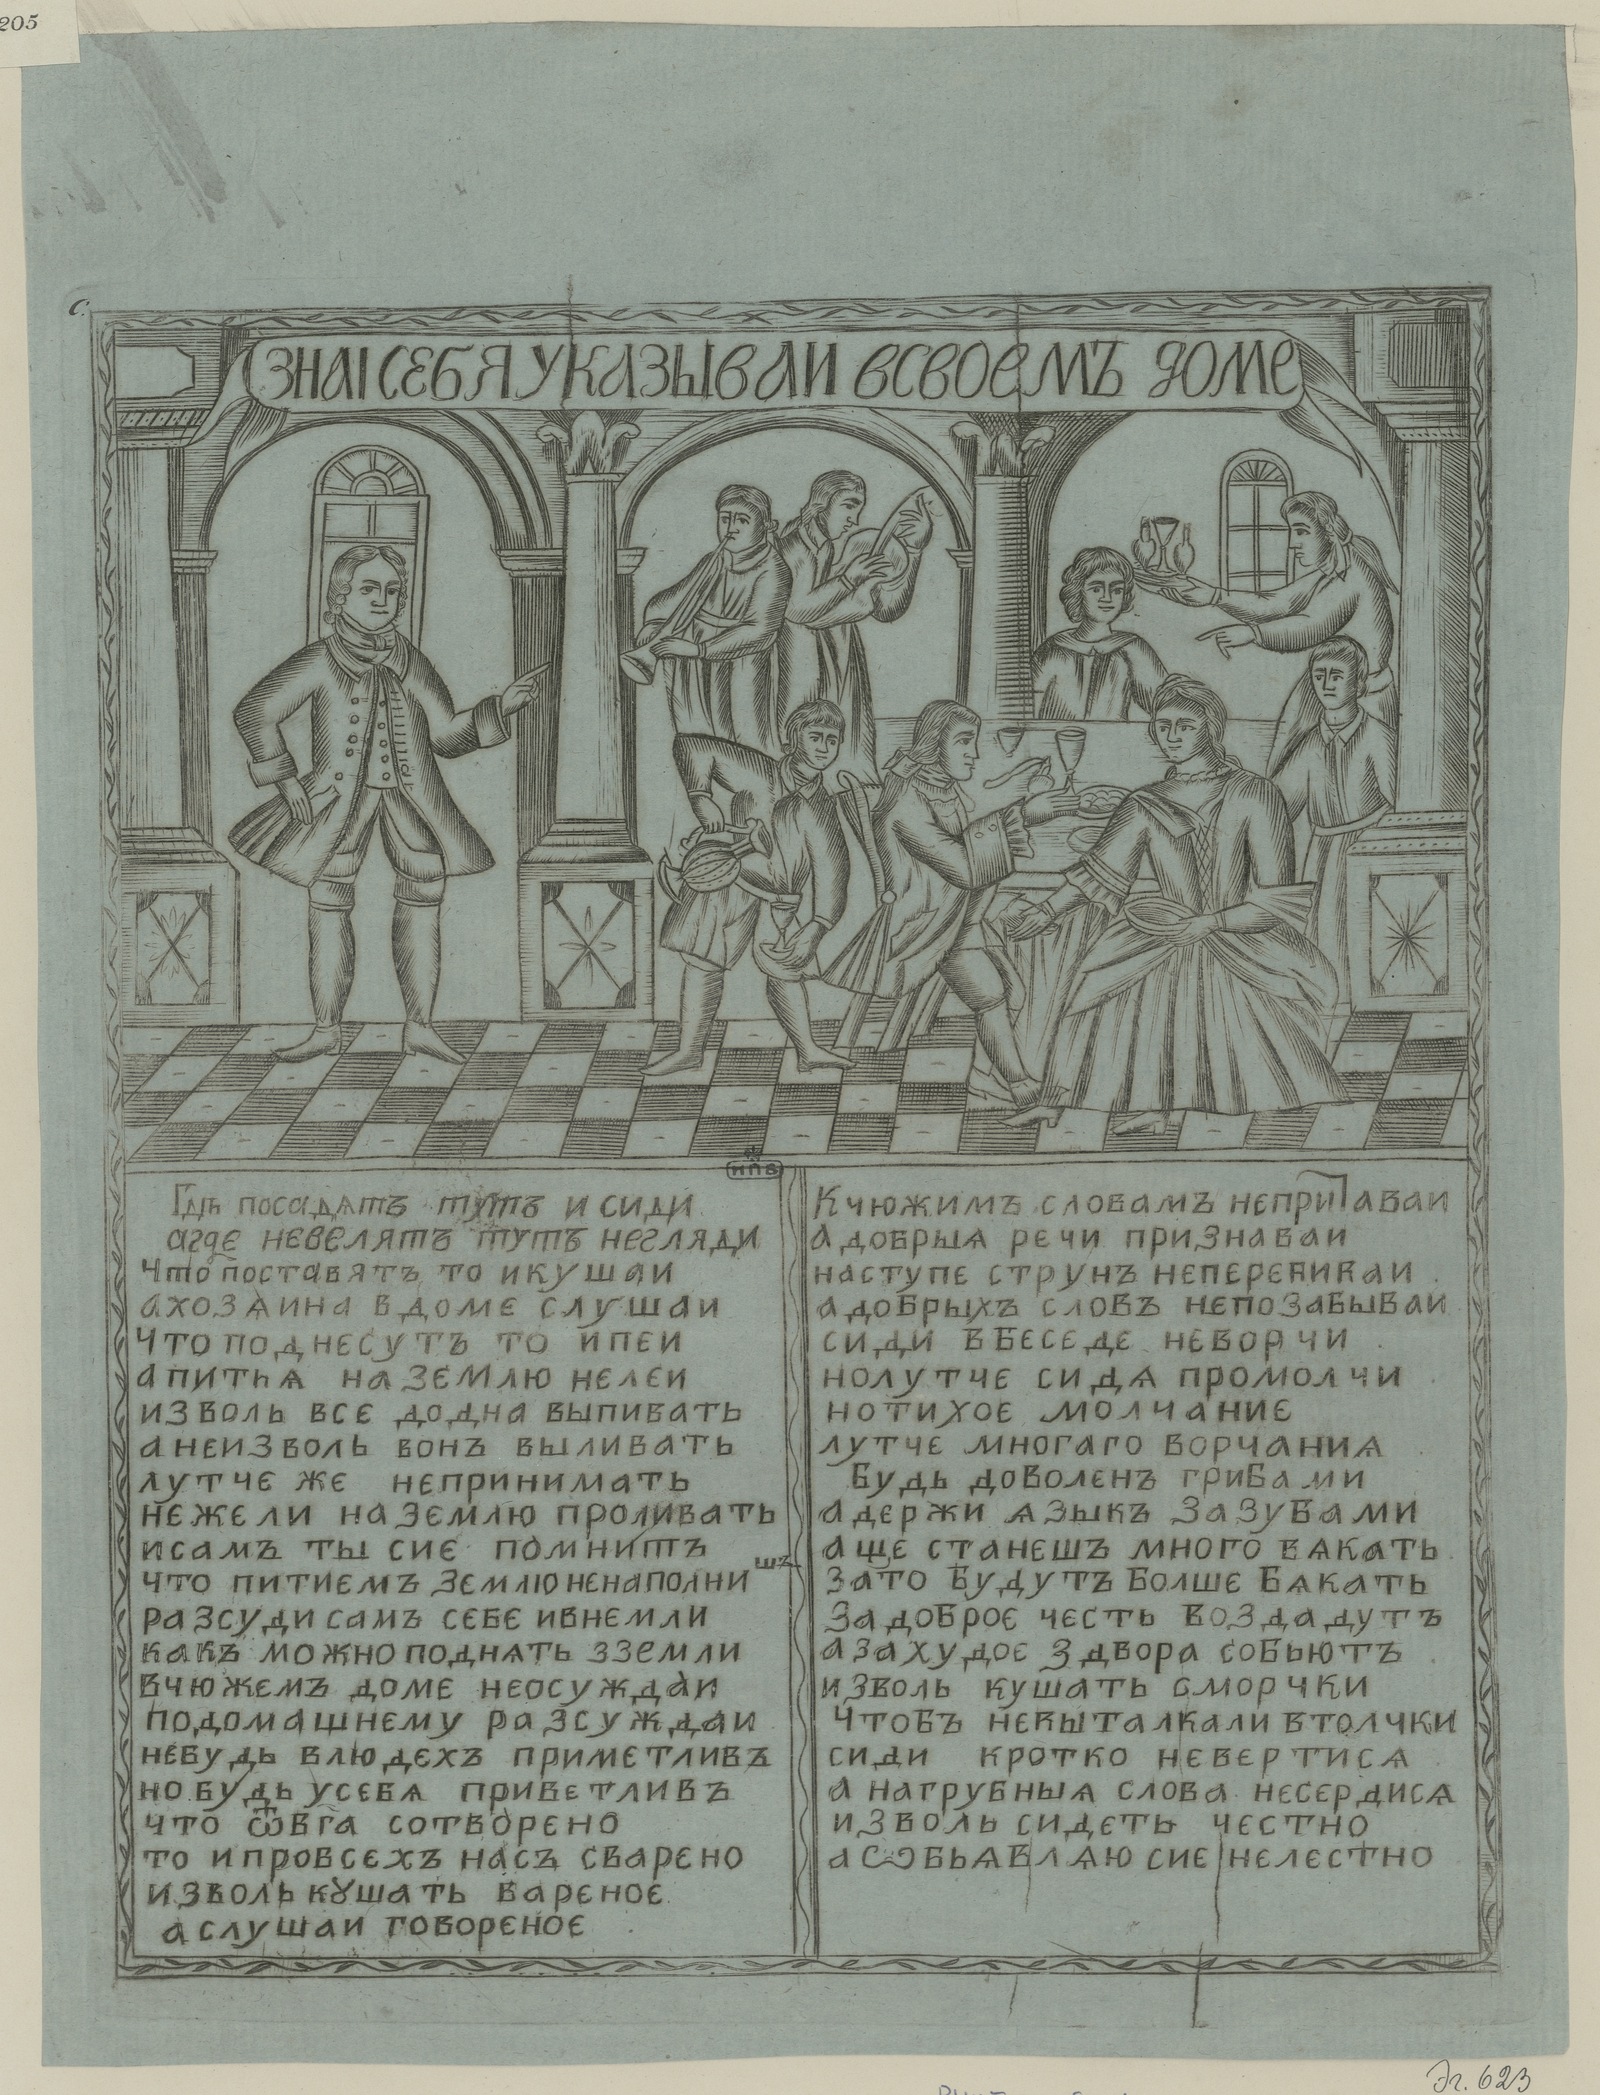 205
С.
ЗНАІ СЕБЯ УКАЗЫВАИ ВСВОЕМЪ ДОМЕ
НПВ
Гдѣ посадѧтъ тутъ и сиди
агде невелятъ тутъ негляди
Что поставятъ то икушаи
ахозѧина вдоме слушаи
Что поднесутъ то ипеи
апитьѧ на землю нелеи
изволь все додна выпивать
анеизволь вонъ выливать
лутче же непринимать
нежели на землю проливать
исамъ ты сие помнитъ
шъ
что питиемъ землю ненаполни
разсуди самъ себе ивнемли
какъ можно поднѧть зземли
вчюжемъ доме неосуждаи
подомашнему разсуждаи
небудь влюдехъ приметливъ
но будь усебѧ приветливъ
что ѿвга сотворено
то ипровсехъ насъ сварено
изволь кꙋшать вареное
аслушаи говореное
Кчюжимъ словамъ непритаваи
адобрыѧ речи признаваи
наступе струнъ неперебиваи
адобрыхъ словъ непозабываи
сиди вбеседе неворчи
нолутче сидѧ промолчи
нотихое молчание
лутче многаго ворчаниѧ
будь доволенъ грибами
адержи ѧзыкъ зазубами
аще станешъ много вѧкать
зато будутъ болше бѧкать
задоброе честь воздадутъ
азахудое здвора собьютъ
изволь кушать сморчки
чтобъ невыталкали втолчки
сиди кротко невертисѧ
а нагрубныѧ слова несердисѧ
изволь сидеть честно
аѡбьѧвлѧю сие нелестно
Эг. 623